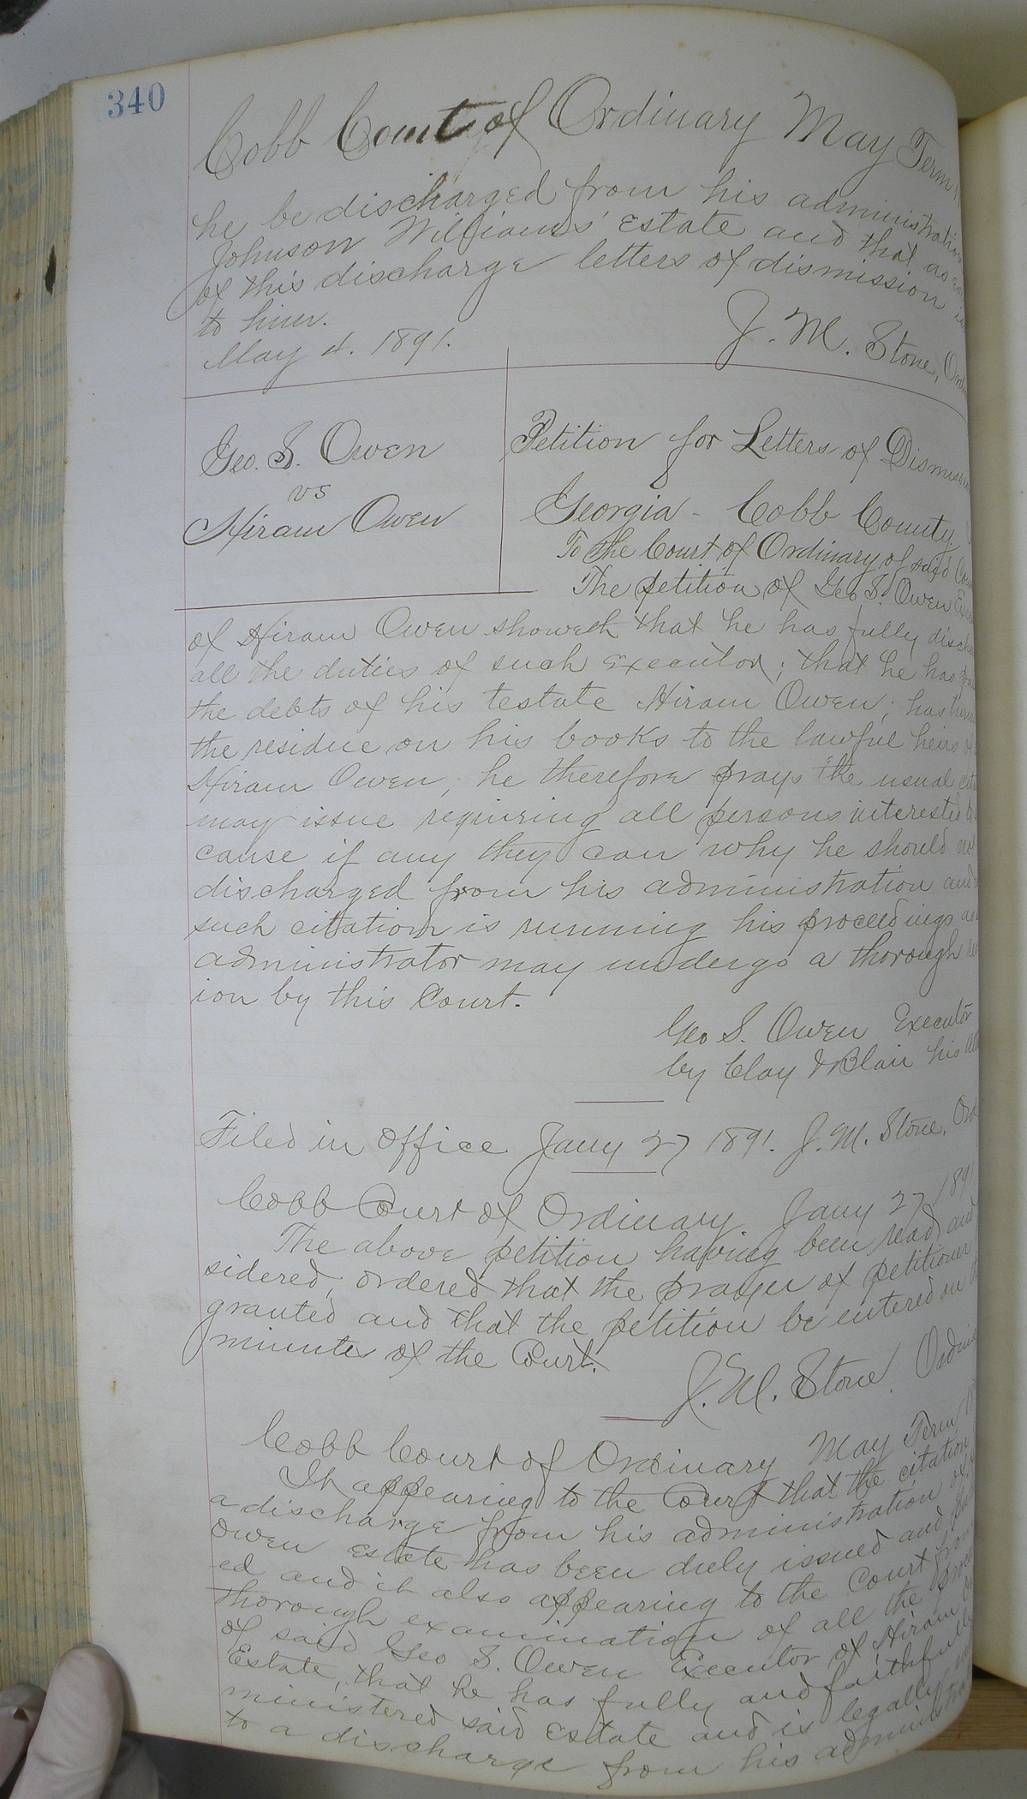 340
Cobb Court of Ordinary May Term
he be discharged from his administration
Johnson Williams' Estate and that
of this discharge letters of dismission
to him.
May 4. 1891.
J. M. Stone,
Geo. S. Owen
vs
Hiram Owen
Petition for Letters of Dismission
Georgia - Cobb County
To the Court of Ordinary of said
The petition of Geo S. Owen
of Hiram Owen showeth that he has fully
all the duties of such Executor; that he has
the debts of his testate Hiram Owen; has
the residue on his books to the lawful heirs
Hiram Owen, he therefore prays the usual
may issue requiring all persons interested
cause if any they can why he should
discharged from his administration and
such citation is running his proceedings as
administrator may undergo a thorough
ion by this Court.
Geo S. Owen Executor
by Clay & Blair his
Filed in office Jany 27 1891. J. M. Stone, Ord
Cobb Court of Ordinary Jany 27 1891
The above petition having been read and
sidered, ordered that the prayer of petitioner
granted and that the petition be entered on
minutes of the Court.
J. M. Stone
Cobb Court of Ordinary May Term
It appearing to the Court that the citation
a discharge from his administration of
Owen estate has been duly issued and
ed and it also appearing to the Court from
thorough examination of all the
of said Geo S. Owen Executor of Hiram
Estate, that he has fully and faithfully
ministered said estate and is legally
to a discharge from his